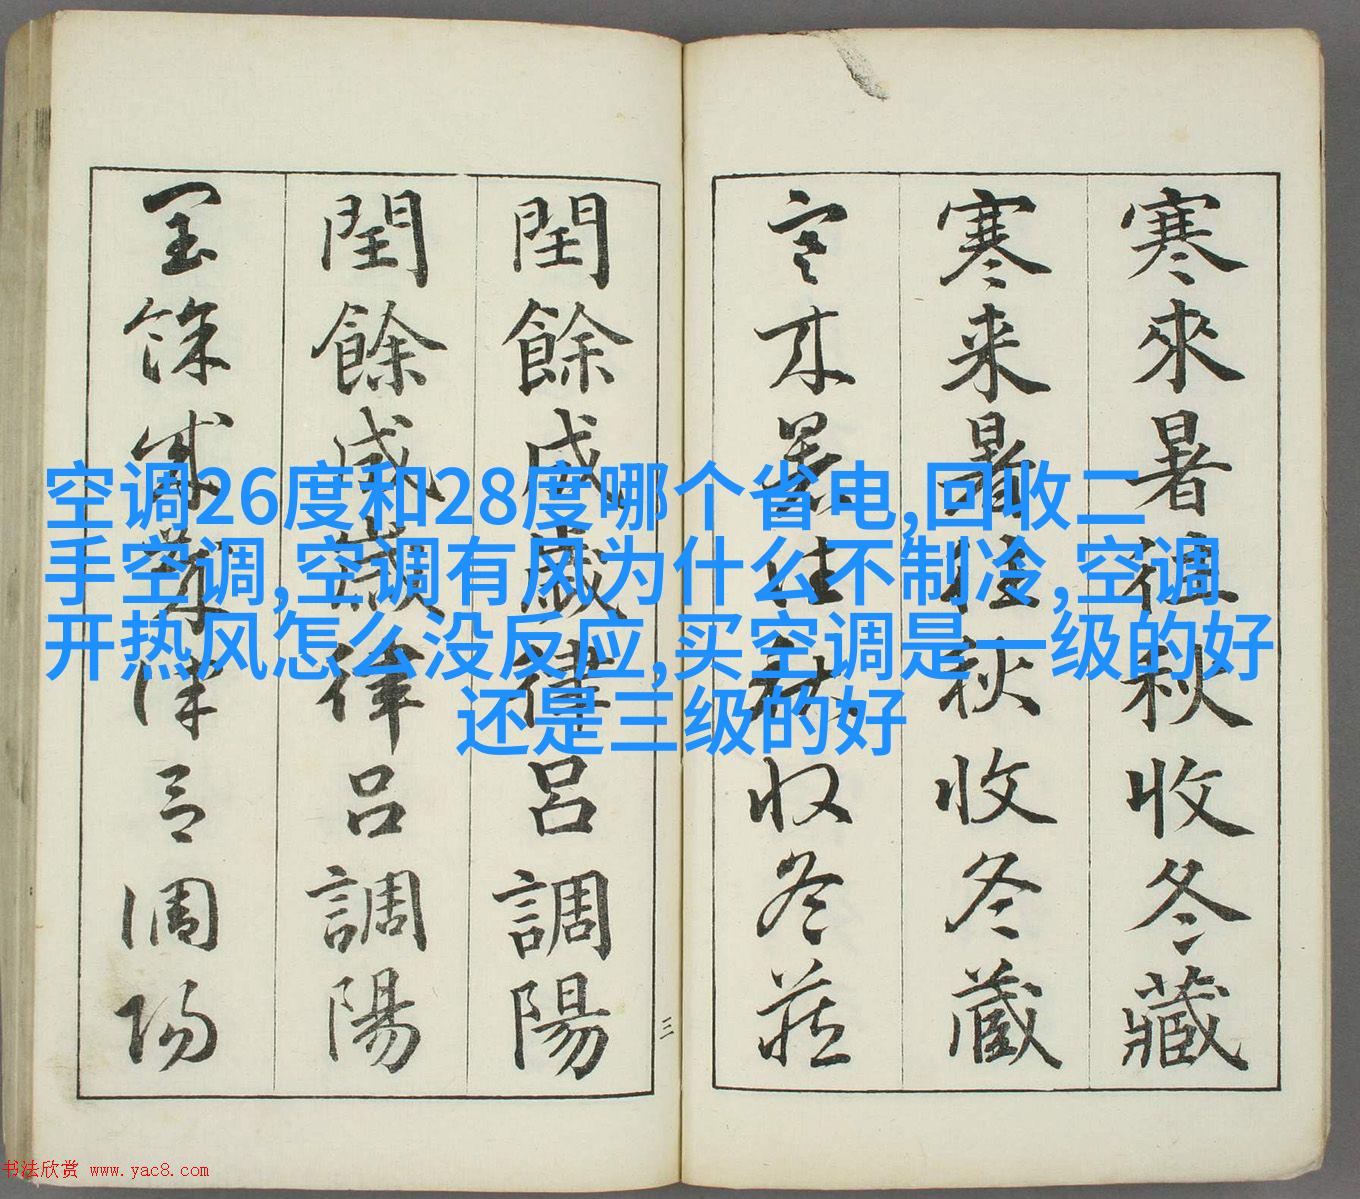 空调26度和28度哪个省电,回收二
手空调,空调有风为什么不制冷,空调
开热风怎么没反应,买空调是一级的好
还是三级的好
寒來暑往秋收冬藏
寒来暑往秋收冬蔵
寒来暑往秋收冬藏
閏餘成歲律吕調陽
閏餘成歲律吕調陽
閏餘成歲律吕調陽
三
书法欣赏 www.yac8.com